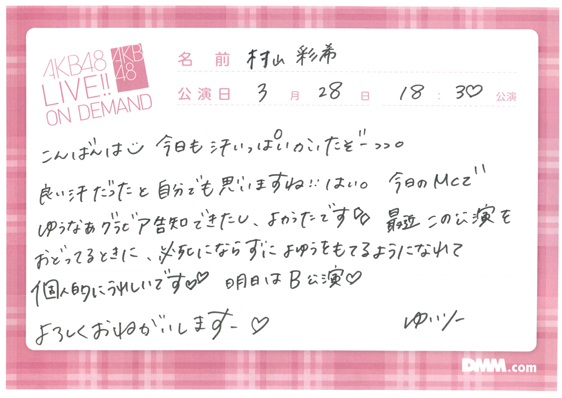 AKB48
LIVE!!
ON DEMAND
AKB
48
名前 村山 彩希
公演日 3月28日 18:30公演
こんばんは 今日も汗いっぱいかいたぞーっっ。
良い汗だったと自分でも思いますね!!はい。今日のMCで
ゆうなぁグラビア告知できたし、よかったです♡ 最近この公演を
おどってるときに、必死にならずによゆうをもてるようになれて
個人的にうれしいです♡♡ 明日はB公演♡
よろしくおねがいしますー♡ ゆいりー
DMM.com